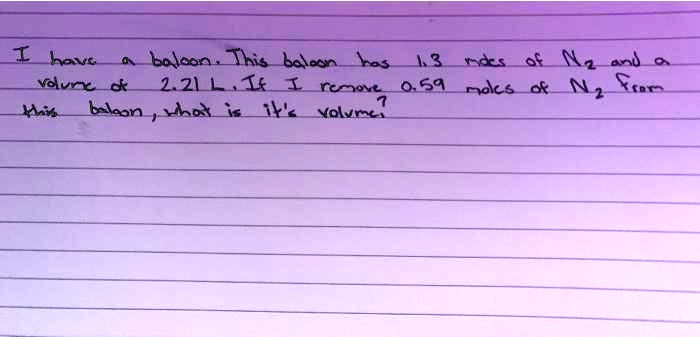 I have a baloon. This baloon has 1.3 moles of N₂ and a
volume of 2.21 L. If I remove 0.59 moles of N₂ from
this baloon, what is it's volume?